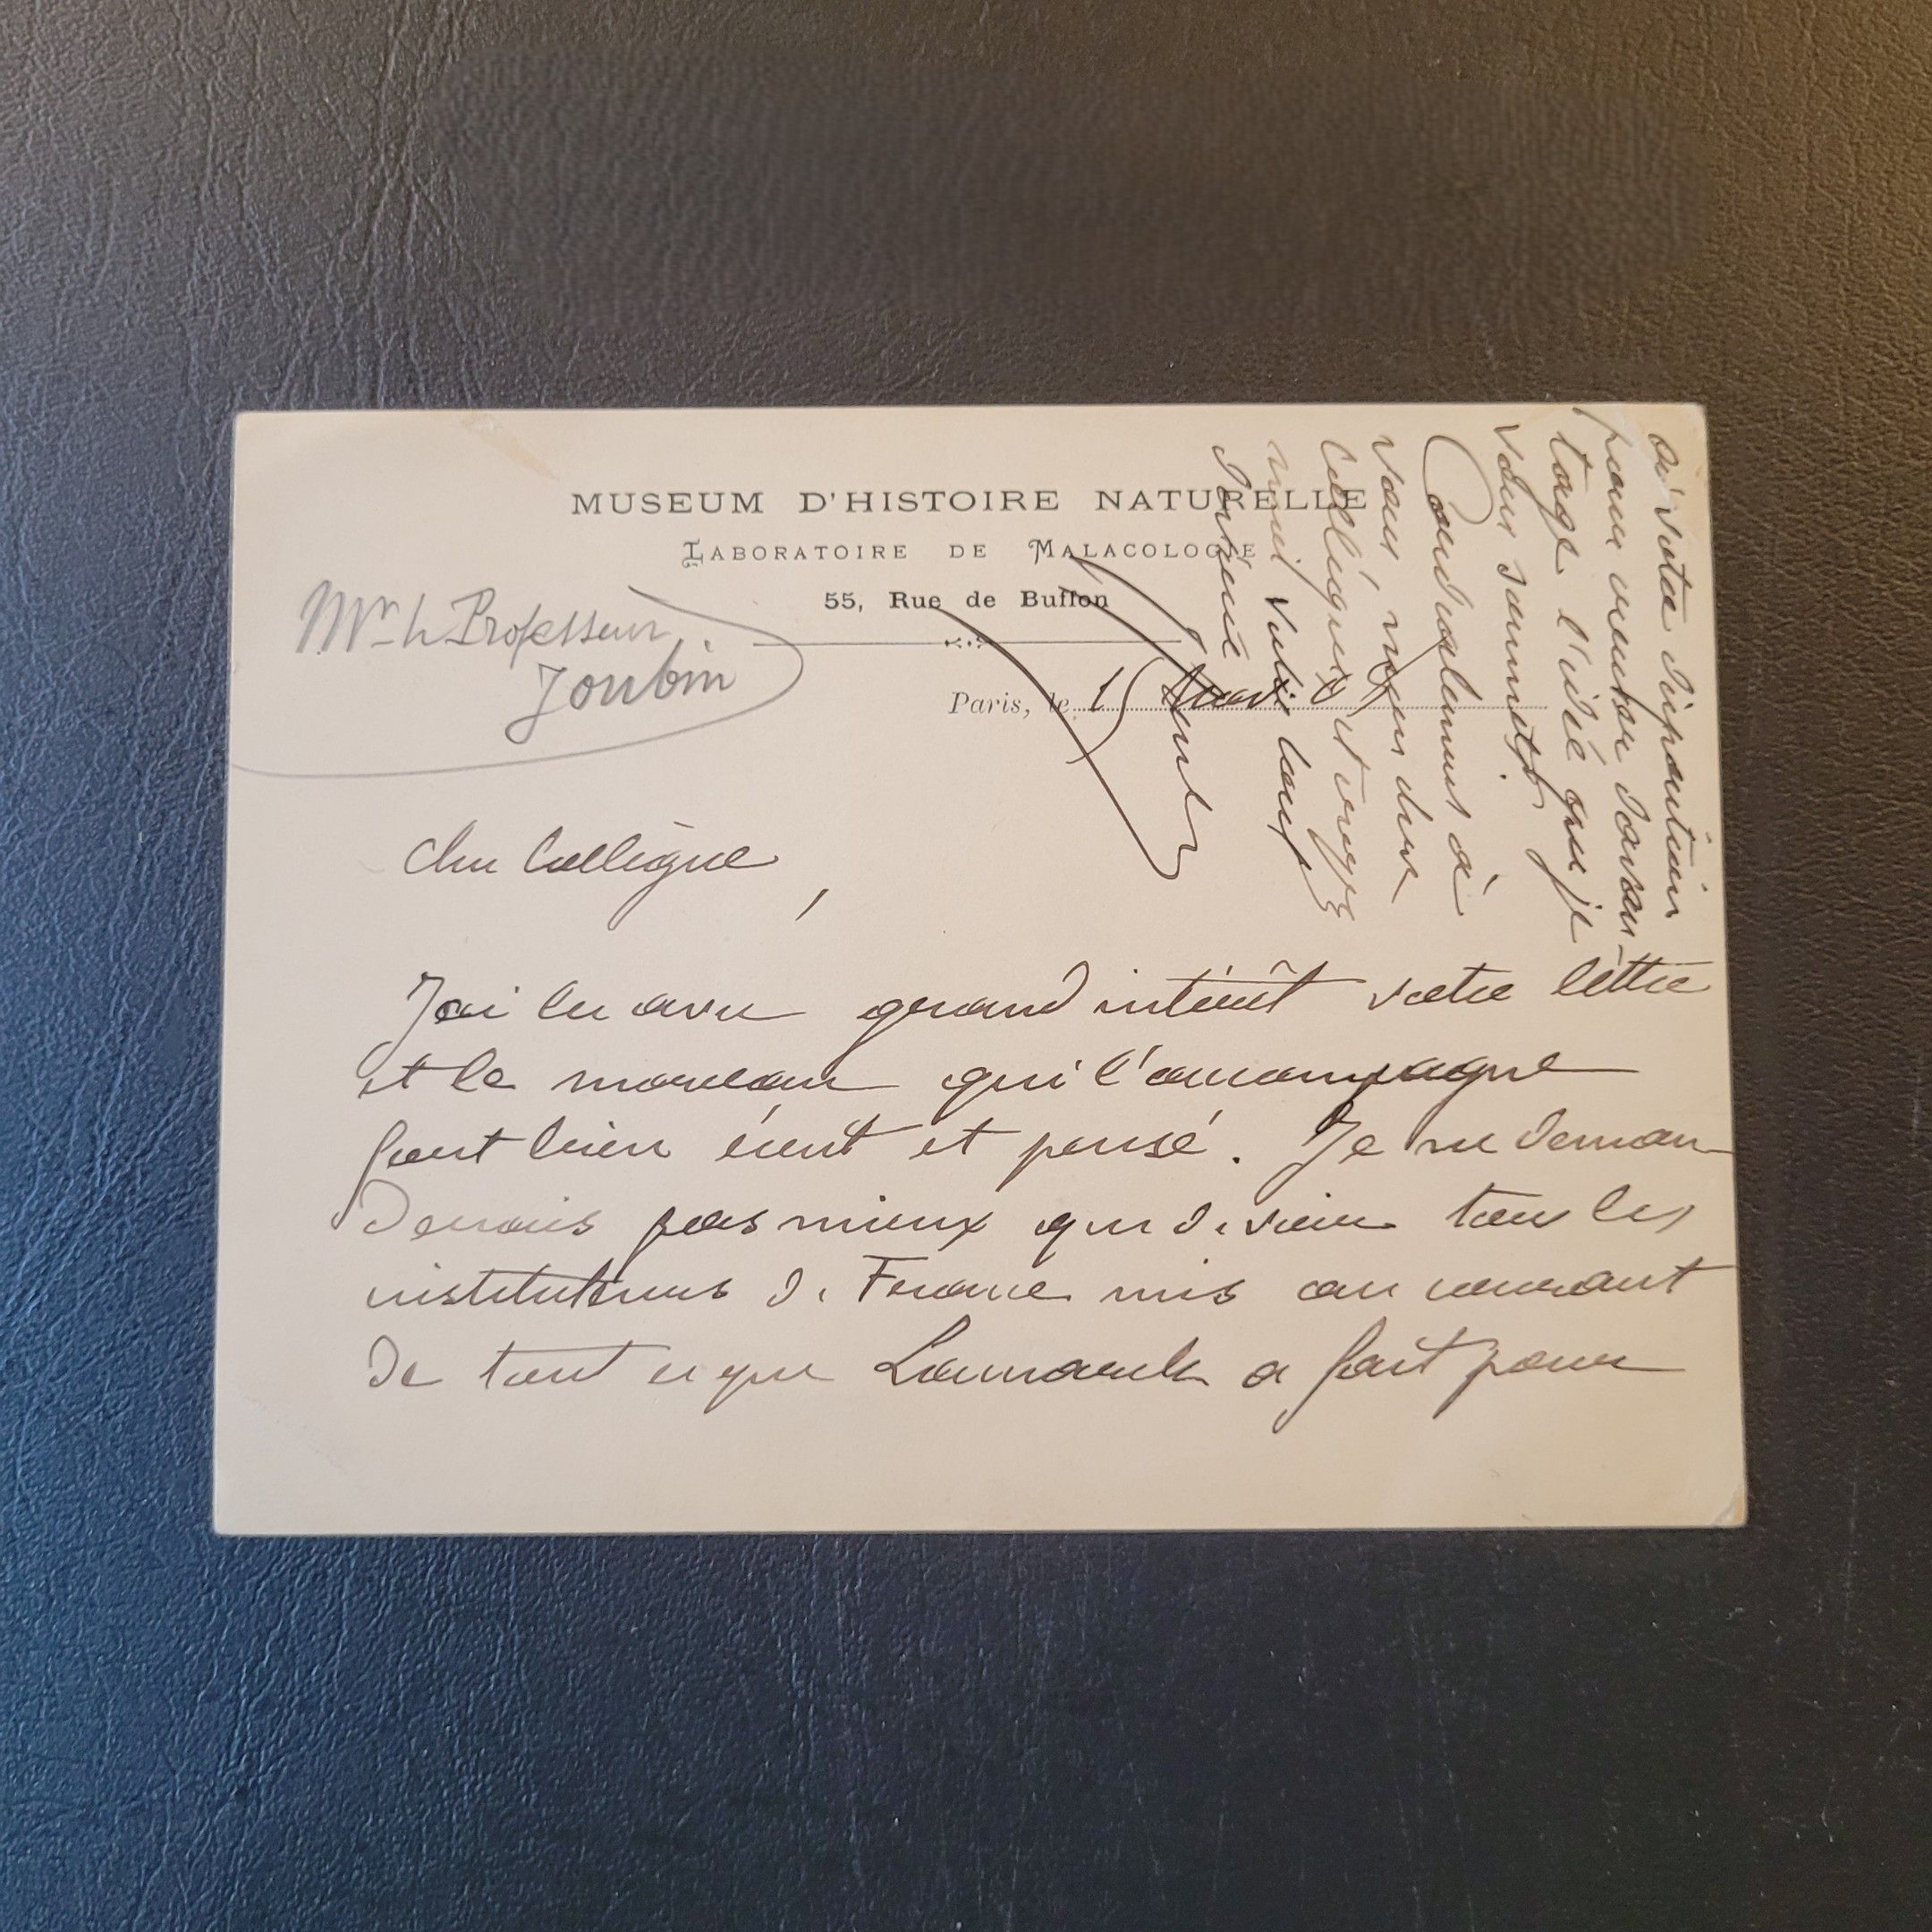 MUSEUM D'HISTOIRE NATURELLE
LABORATOIRE DE MALACOLOGIE
55, Rue de Buffon
Mr le Professeur
Joubin
Paris, le 15
Cher Collègue,
J'ai lu avec grand intérêt votre lettre
et le morceau qui l'accompagne
fort bien écrit et pensé. Je ne deman
derais pas mieux que de voir tous les
instituteurs de France mis au courant
de tout ce que Lamarck a fait pour
à votre disposition
pour creuser davan-
tage l'idée que je
vous soumets.
Cordialement à
vous, mon cher
Collègue et croyez
moi votre tout
dévoué